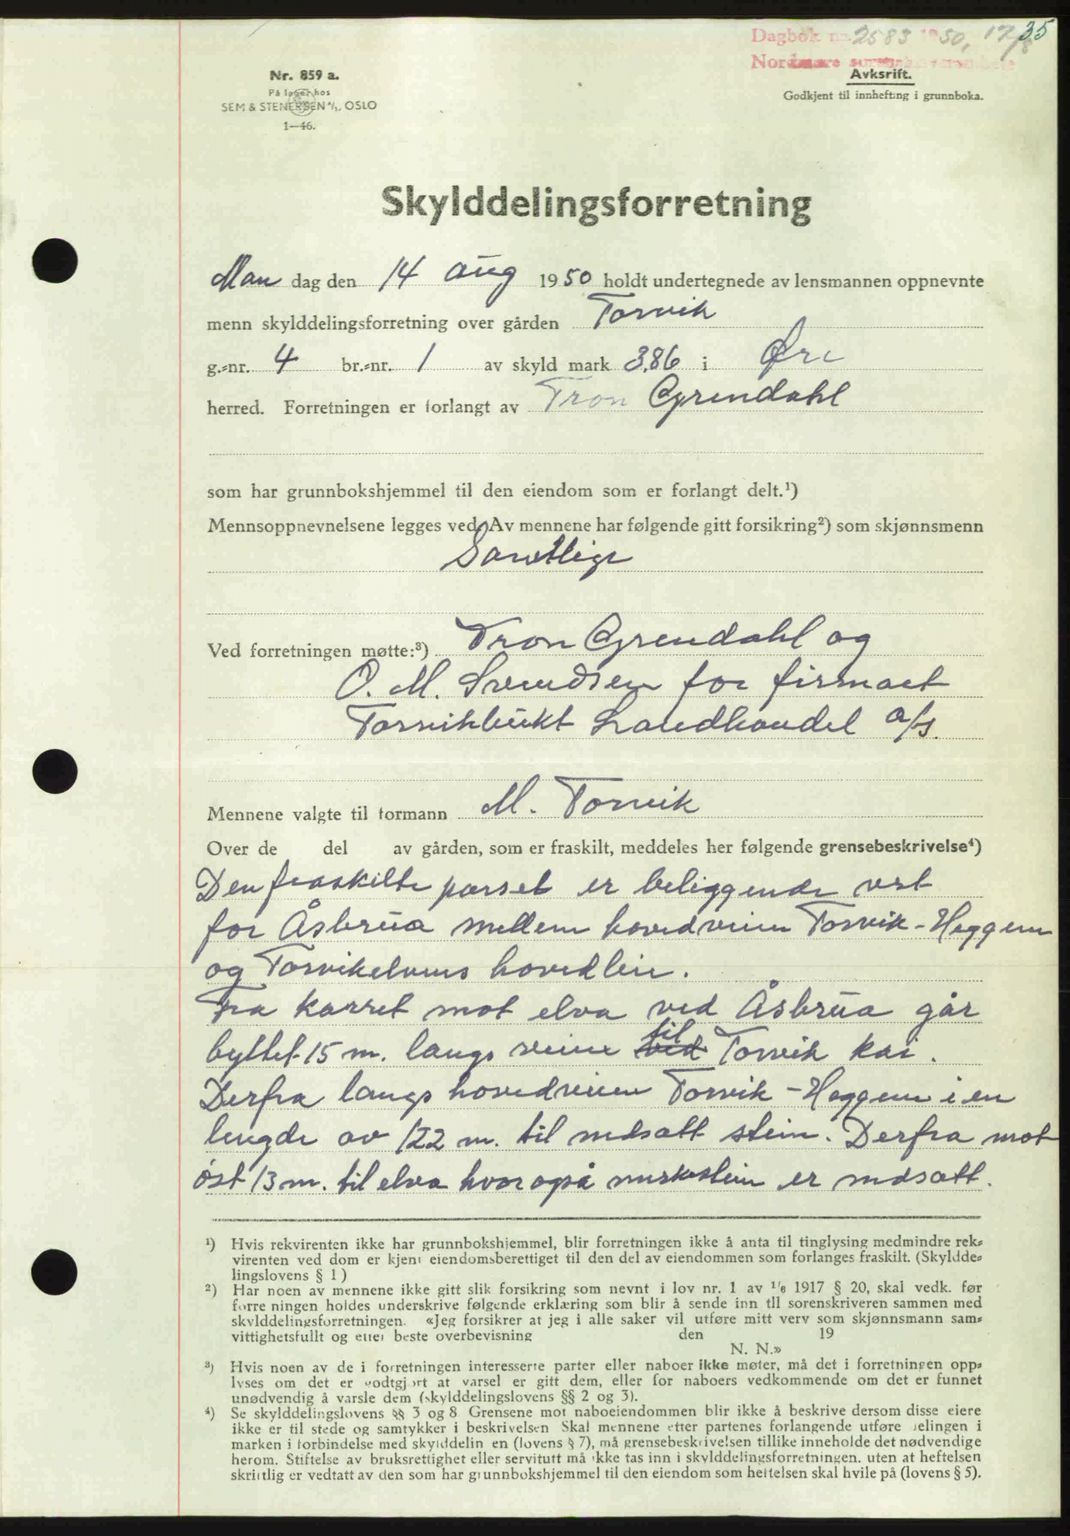 35
Dagbok nr. 2583 1950, 17/8
Nordmøre sorenskriverembete
Nr. 859 a.
Avskrift.
På lager hos
Godkjent til innhefting i grunnboka.
SEM & STENERSEN A/S, OSLO
1—46.
Skylddelingsforretning
Man dag den 14 aug 1950 holdt undertegnede av lensmannen oppnevnte
menn skylddelingsforretning over gården Torvik
g.-nr. 4 br.-nr. 1 av skyld mark 3,86 i Øre
herred. Forretningen er forlangt av Tron Grendahl
som har grunnbokshjemmel til den eiendom som er forlangt delt.¹)
Mennsoppnevnelsene legges ved. Av mennene har følgende gitt forsikring²) som skjønnsmenn
Samtlige
Ved forretningen møtte:³) Tron Grendahl og
O. M. Svendsen for firmaet
Torvikbukt Landhandel a/s.
Mennene valgte til formann M. Torvik
Over de del av gården, som er fraskilt, meddeles her følgende grensebeskrivelse⁴)
Den fraskilte parsel er beliggende vest
for Åsbrua mellem hovedveien Torvik - Heggem
og Torvikelvens hovedleie.
Fra karret mot elva ved Åsbrua går
byttet 15 m. langs veien ved til Torvik kai.
Derfra langs hovedveien Torvik - Heggem i en
lengde av 122 m. til nedsatt stein. Derfra mot
øst 13 m. til elva hvor også merkestein er nedsatt.
¹) Hvis rekvirenten ikke har grunnbokshjemmel, blir forretningen ikke å anta til tinglysing medmindre rek-
virenten ved dom er kjent eiendomsberettiget til den del av eiendommen som forlanges fraskilt. (Skyldde-
lingslovens § 1)
²) Har noen av mennene ikke gitt slik forsikring som nevnt i lov nr. 1 av 1/6 1917 § 20, skal vedk. før
forretningen holdes underskrive følgende erklæring som blir å sende inn til sorenskriveren sammen med
skylddelingsforretningen. «Jeg forsikrer at jeg i alle saker vil utføre mitt verv som skjønnsmann sam-
vittighetsfullt og etter beste overbevisning den 19
N. N.»
³) Hvis noen av de i forretningen interesserte parter eller naboer ikke møter, må det i forretningen opp-
lyses om det er godtgjort at varsel er gitt dem, eller for naboers vedkommende om det er funnet
unødvendig å varsle dem (skylddelingslovens §§ 2 og 3).
⁴) Se skylddelingslovens §§ 3 og 8. Grensene mot naboeiendommen blir ikke å beskrive dersom disse eiere
ikke er til stede og samtykker i beskrivelsen. Skal mennene etter partenes forlangende utføre delingen i
marken i forbindelse med skylddelingen (lovens § 7), må grensebeskrivelsen tillike inneholde det nødvendige
herom. Stiftelse av bruksrettighet eller servitutt må ikke tas inn i skylddelingsforretningen. uten at heftelsen
skriftlig er vedtatt av den som har grunnbokshjemmel til den eiendom som heftelsen skal hvile på (lovens § 5).